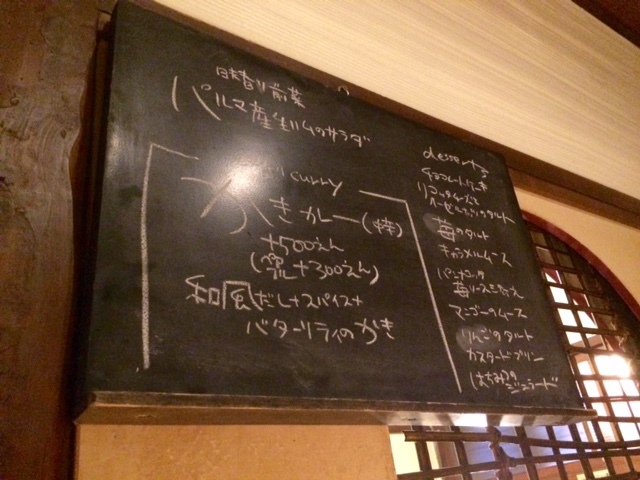 日替り前菜
パルマ産生ハムのサラダ
curry
かきカレー(辛)
+500えん
+300えん)
和風だし+スパイス+
バターソティのかき
desserts
チョコレートケーキ
リコッタチーズと
ヘーゼルナッツのタルト
苺のタルト
キャラメルムース
パンナコッタ
苺ソースを添え
マンゴームース
りんごのタルト
カスタードプリン
はちみつの
ジェラード